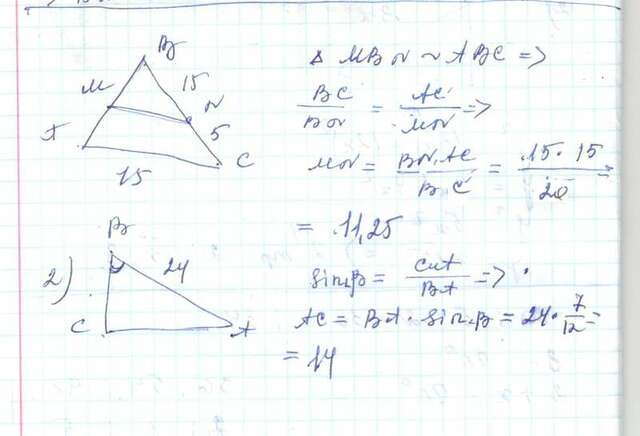 B
M 15 N
A 5
15 C
Δ MBN ~ ABC =>
BC/BN = AC/MN =>
MN = BN·AC/BC = 15·15/20 =
= 11,25
2)
B
24
C A
sin B = CA/BA =>
AC = BA · sin B = 24 · 7/12 =
= 14